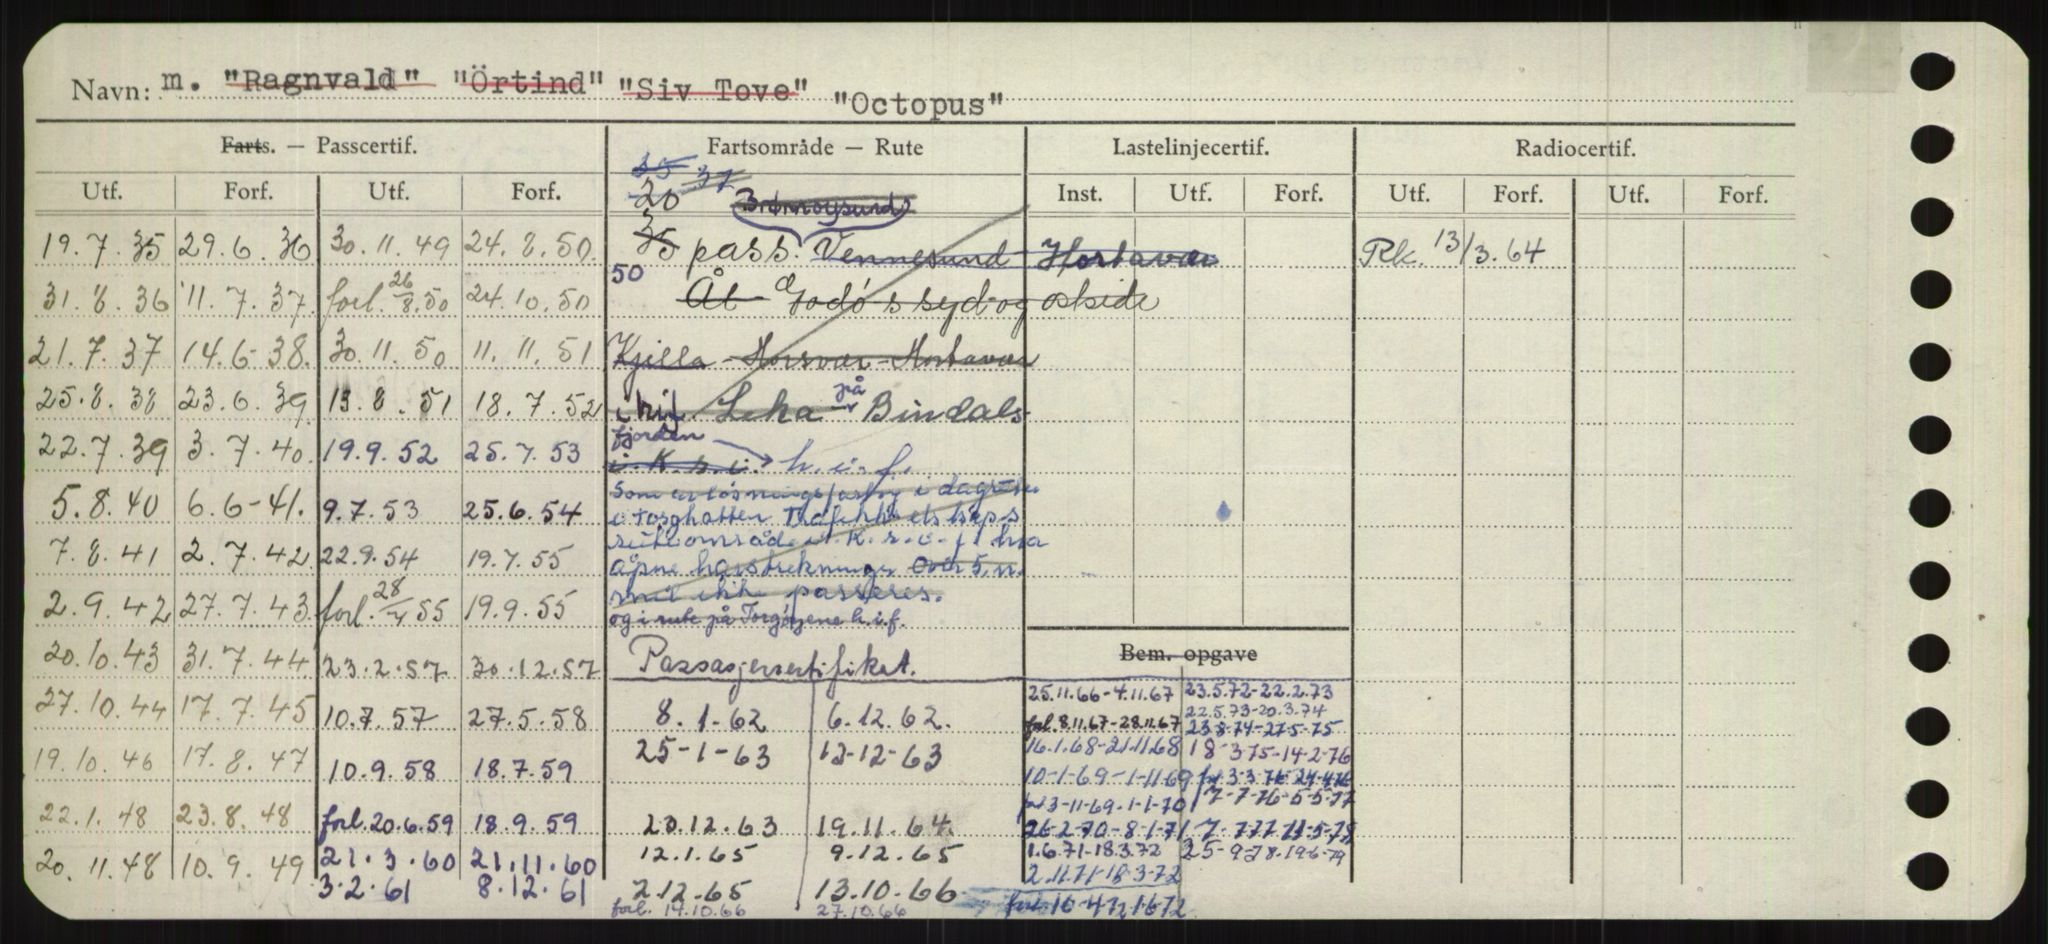 Navn: m. "Ragnvald" "Örtind" "Siv Tove" "Octopus"
Farts. — Passcertif. Fartsområde — Rute Lastelinjecertif. Radiocertif.
Utf. Forf. Utf. Forf. Inst. Utf. Forf. Utf. Forf. Utf. Forf.
20 37 Brønnøysund
19.7.35 29.6.36 30.11.49 24.8.50 35 pass. Vennesund - Hortavær Rk. 13/3.64
50
31.8.36 11.7.37 forl. 26/8.50 24.10.50 Åt Godø's syd og østside
21.7.37 14.6-38. 30.11.50 11.11.51 Kjella - Horsvær - Hortavær
25.8.38 23.6.39 13.8.51 18.7.52 Leka på Bindals-
fjorden
22.7.39 3.7.40 19.9.52 25.7.53 i.K.s.i. h.i.f.
5.8.40 6.6-41. 9.7.53 25.6.54 Som avløsningsfartøy i
i Torghatten Trafikkselskaps
7.8.41 2.7.42 22.9.54 19.7.55 ruteområde i.K.s.i.f. hva
åpne havstrekninger over 5 n.
2.9.42 27.7.43 forl. 28/7 55 19.9.55 mil ikke passeres.
og i rute på Torgøyene h.i.f.
20.10.43 31.7.44 23.2.57 30.12.57 Passasjersertifikat. Bem. opgave
27.10.44 17.7.45 10.7.57 27.5.58 8.1-62 6.12.62. 25.11.66-4.11.67 23.5.72-22.2.73
22.5.73-20.3.74
forl. 8.11.67-28.11.67 23.8-74-27-5-75
19.10.46 17.8.47 10.9.58 18.7.59 25-1-63 12-12-63 16.1.68-21.11.68 18-3-75-14-2-76
10-1-69-1-11-69
forl 3-11-69-1-1-70 7-7-76-5-5-77
22.1.48 23.8.48 forl. 20.6.59 18.9.59 20.12.63 19.11.64. 26-2-70-8-1-71
20.11.48 10.9.49 21.3.60 21.11.60 12.1.65 9.12.65 1.6.71-18.3.72 25-9-78-19-6-79
3.2.61 8.12.61 2.12.65 13.10.66 2.11.71-18-3-72
forl. 14.10.66 27.10.66